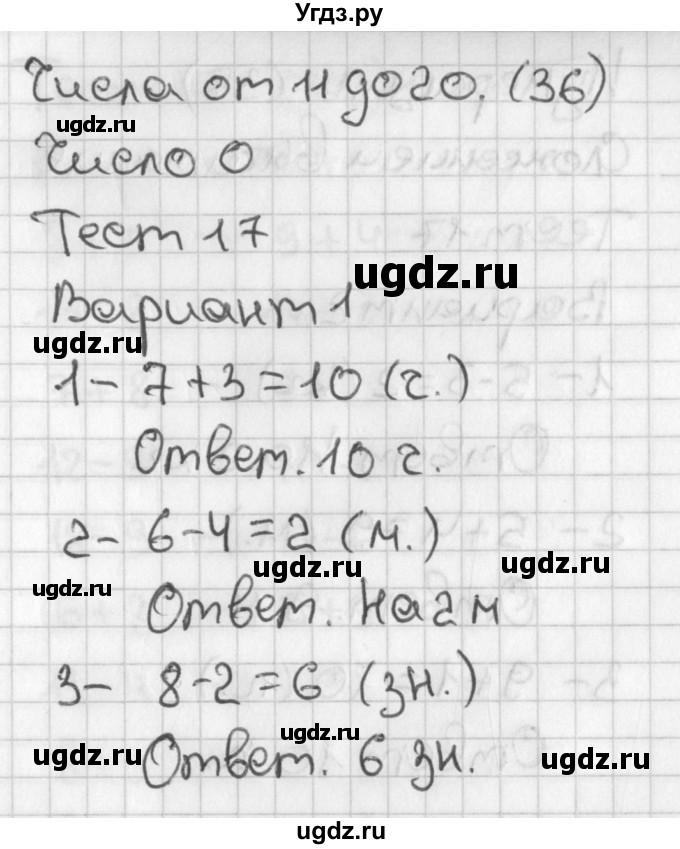 Угдз.ру
Числа от 11 до 20. (36)
ugdz.ru
Число 0
Тест 17
ugdz.ru
Вариант 1
ugdz.ru
1 - 7 + 3 = 10 (г.)
Ответ. 10 г.
2 - 6 - 4 = 2 (м.)
ugdz.ru ugdz.ru
ugdz.ru
Ответ. На 2 м
3 - 8 - 2 = 6 (зн.)
ugdz.ru
ugdz.ru Ответ. 6 зн. ugdz.ru
ugdz.ru